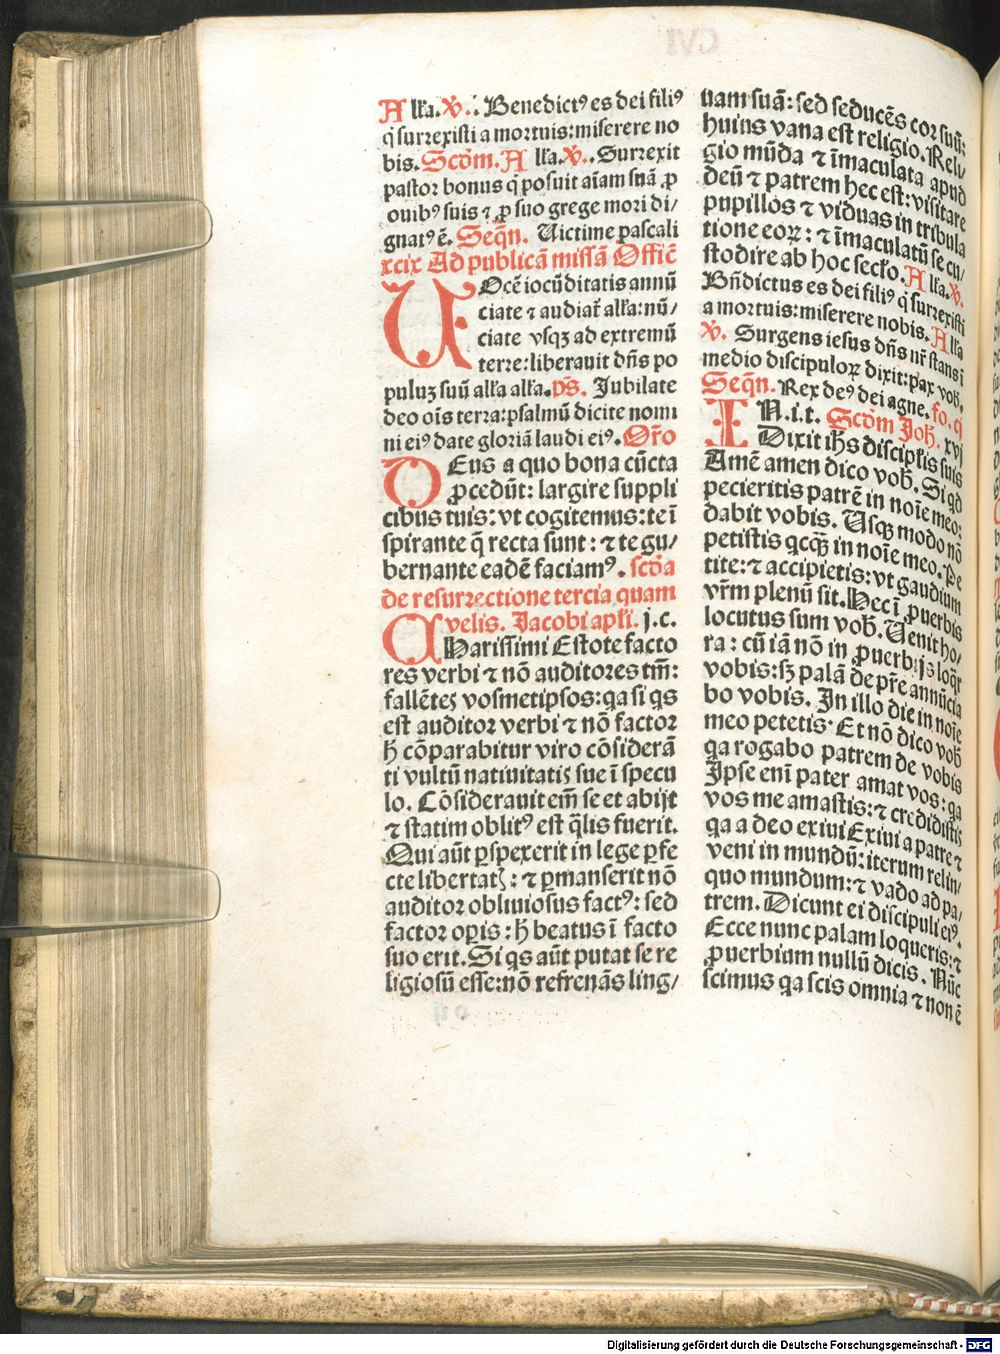 Alła. ℣. ∴ Benedictꝰ es dei filiꝰ
q̇ surrexisti a mortuis: miserere no
bis. Scd̄m. Alła. ℣. . Surrexit
pastor bonus q̇ posuit aīam suā ꝓ
ouibꝰ suis ⁊ ꝓ suo grege mori di⸗
gnatꝰ ē. Seq̄n. Uictime pascali
xcix Ad publicā missā Officē
UOcē iocūditatis annū
ciate ⁊ audiat̄ alła: nū⸗
ciate vsqꝫ ad extremū
terre: liberauit dn̄s po
puluꝫ suū alła alła. ps̄. Jubilate
deo oīs terra: psalmū dicite nomi
ni eiꝰ date gloriā laudi eiꝰ. Or̄o
DEus a quo bona cūcta
ꝓcedūt: largire suppli
cibus tuis: vt cogitemus: te ī
spirante q̄ recta sunt: ⁊ te gu⸗
bernante eadē faciamꝰ. scd̄a
de resurrectione tercia quam
velis. Jacobi apłi. j. c.
CHarissimi Estote facto
res verbi ⁊ nō auditores tm̄:
fallētes vosmetipsos: qa si qs
est auditor verbi ⁊ nō factor
ħ cōparabitur viro cōsiderā
ti vultū natiuitatis sue ī specu
lo. Cōsiderauit em̄ se et abijt
⁊ statim oblitꝰ est q̄lis fuerit.
Qui aūt ꝑspexerit in lege ꝑfe
cte libertatꝭ: ⁊ ꝑmanserit nō
auditor obliuiosus factꝰ: sed
factor oꝑis: ħ beatus ī facto
suo erit. Si qs aūt putat se re
ligiosū esse: nō refrenās ling⸗
uam suā: sed seducēs cor suū:
huius vana est religio. Reli⸗
gio mūda ⁊ īmaculata apud
deū ⁊ patrem hec est: visitare
pupillos ⁊ viduas in tribula
tione eoꝝ: ⁊ īmaculatū se cu⸗
stodire ab hoc secło. Alła. ℣.
Bn̄dictus es dei filiꝰ q̇ surrexisti
a mortuis: miserere nobis. Alła
℣. Surgens iesus dn̄s nr̄ stans ī
medio discipuloꝝ dixit: pax vob̄.
Seq̄n. Rex deꝰ dei agne. fo. cj
IN. i. t. Scd̄m Joh̄. xvj
Dixit ih̄s discipłis suis
Amē amen dico vob̄. Si qd
pecieritis patrē in noīe meo:
dabit vobis. Usqꝫ modo nō
petistis qcqꝫ in noīe meo. Pe
tite: ⁊ accipietis: vt gaudium
vr̄m plenū sit. Hec ī ꝓuerbis
locutus sum vob̄. Uenit ho⸗
ra: cū iā nō in ꝓuerbijs loqr̄
vobis: sꝫ palā de pr̄e annūcia
bo vobis. In illo die in noīe
meo petetis. Et nō dico vob̄
qa rogabo patrem de vobis
Ipse enī pater amat vos: qa
vos me amastis: ⁊ credidistis
qa a deo exiui Exiui a patre ⁊
veni in mundū: iterum relin⸗
quo mundum: ⁊ vado ad pa⸗
trem. Dicunt ei discipuli eiꝰ.
Ecce nunc palam loqueris: ⁊
ꝓuerbium nullū dicis. Nūc
scimus qa scis omnia ⁊ non ē
Digitalisierung gefördert durch die Deutsche Forschungsgemeinschaft - DFG